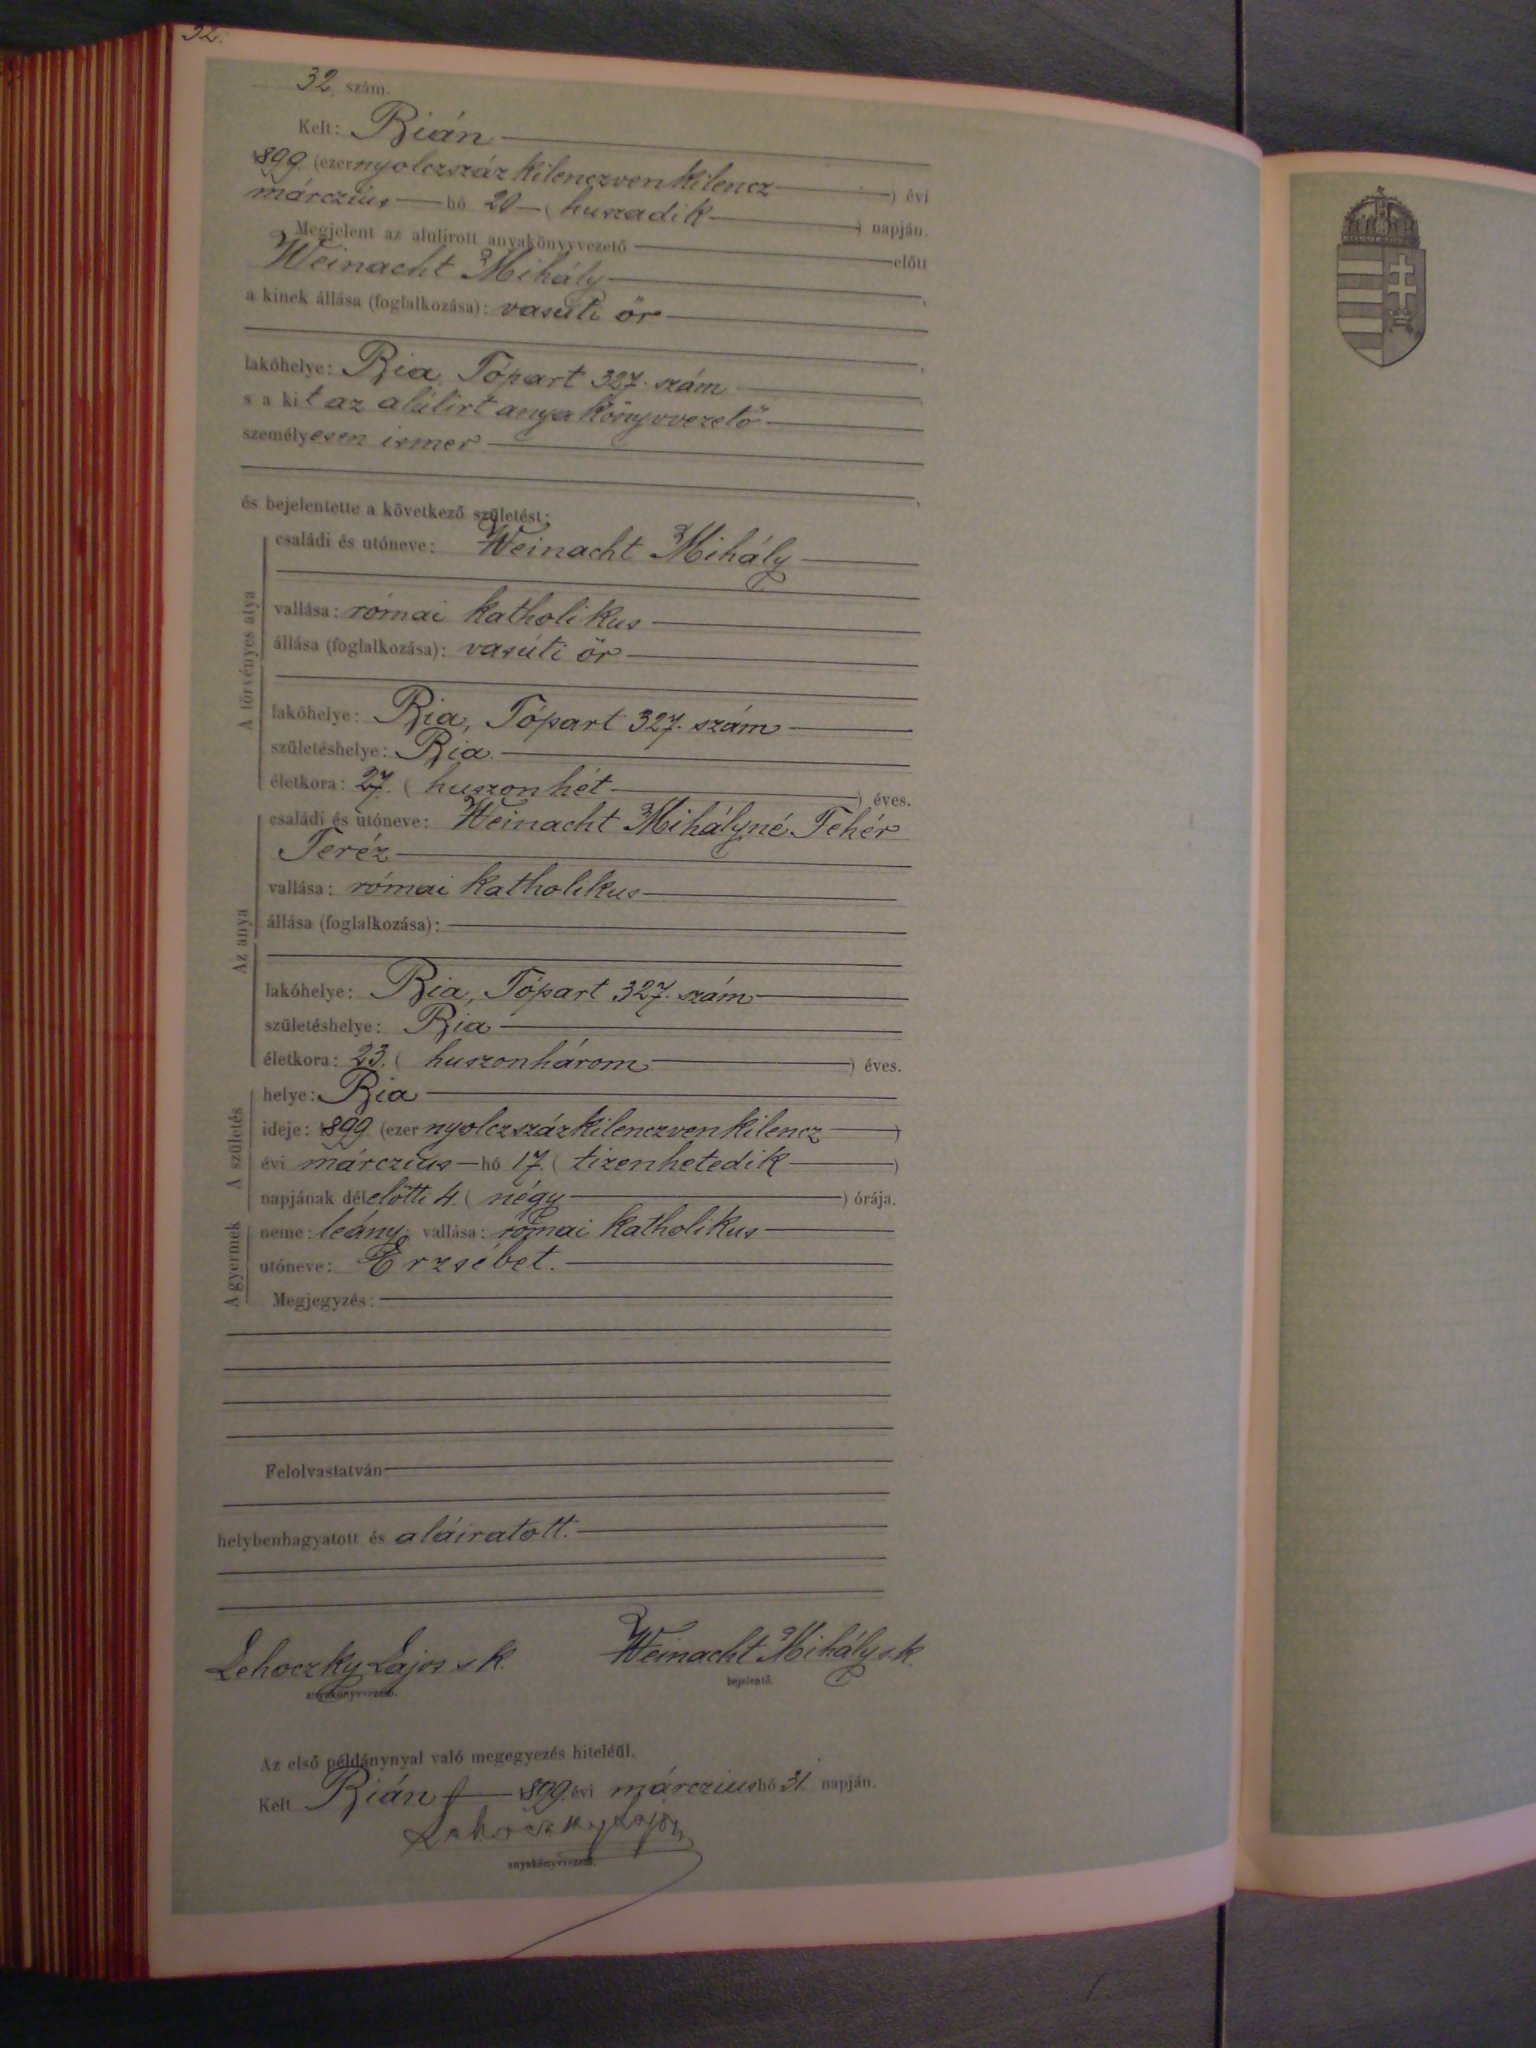 32.
32 szám.
Kelt: Bián
1899 (ezer nyolczszáz kilenczven kilencz ) évi
márczius hó 20 ( huszadik ) napján.
Megjelent az alulirott anyakönyvvezető előtt
Weinacht Mihály ,
a kinek állása (foglalkozása): vasúti őr
,
lakóhelye: Bia, Tópart 327. szám ,
s a kit az alúlirt anyakönyvvezető
személyesen ismer
,
és bejelentette a következő születést:
A törvényes atya
családi és utóneve: Weinacht Mihály
vallása: római katholikus
állása (foglalkozása): vasúti őr
lakóhelye: Bia, Tópart 327. szám
születéshelye: Bia.
életkora: 27. ( huszonhét ) éves.
Az anya
családi és utóneve: Weinacht Mihályné Fehér
Teréz
vallása: római katholikus
állása (foglalkozása):
lakóhelye: Bia, Tópart 327. szám
születéshelye: Bia
életkora: 23. ( huszonhárom ) éves.
A születés
helye: Bia
ideje: 1899 (ezer nyolczszáz kilenczven kilencz )
évi márczius hó 17. ( tizenhetedik )
napjának délelőtti 4. ( négy ) órája.
A gyermek
neme: leány; vallása: római katholikus
utóneve: Erzsébet.
Megjegyzés:
Felolvastatván
helybenhagyatott és aláiratott.
Lehoczky Lajos s k. Weinacht Mihály s. k.
anyakönyvvezető. bejelentő.
Az első példánynyal való megegyezés hiteléűl.
Kelt Bián 1899. évi márczius hó 31 napján.
Lehoczky Lajos
anyakönyvvezető.